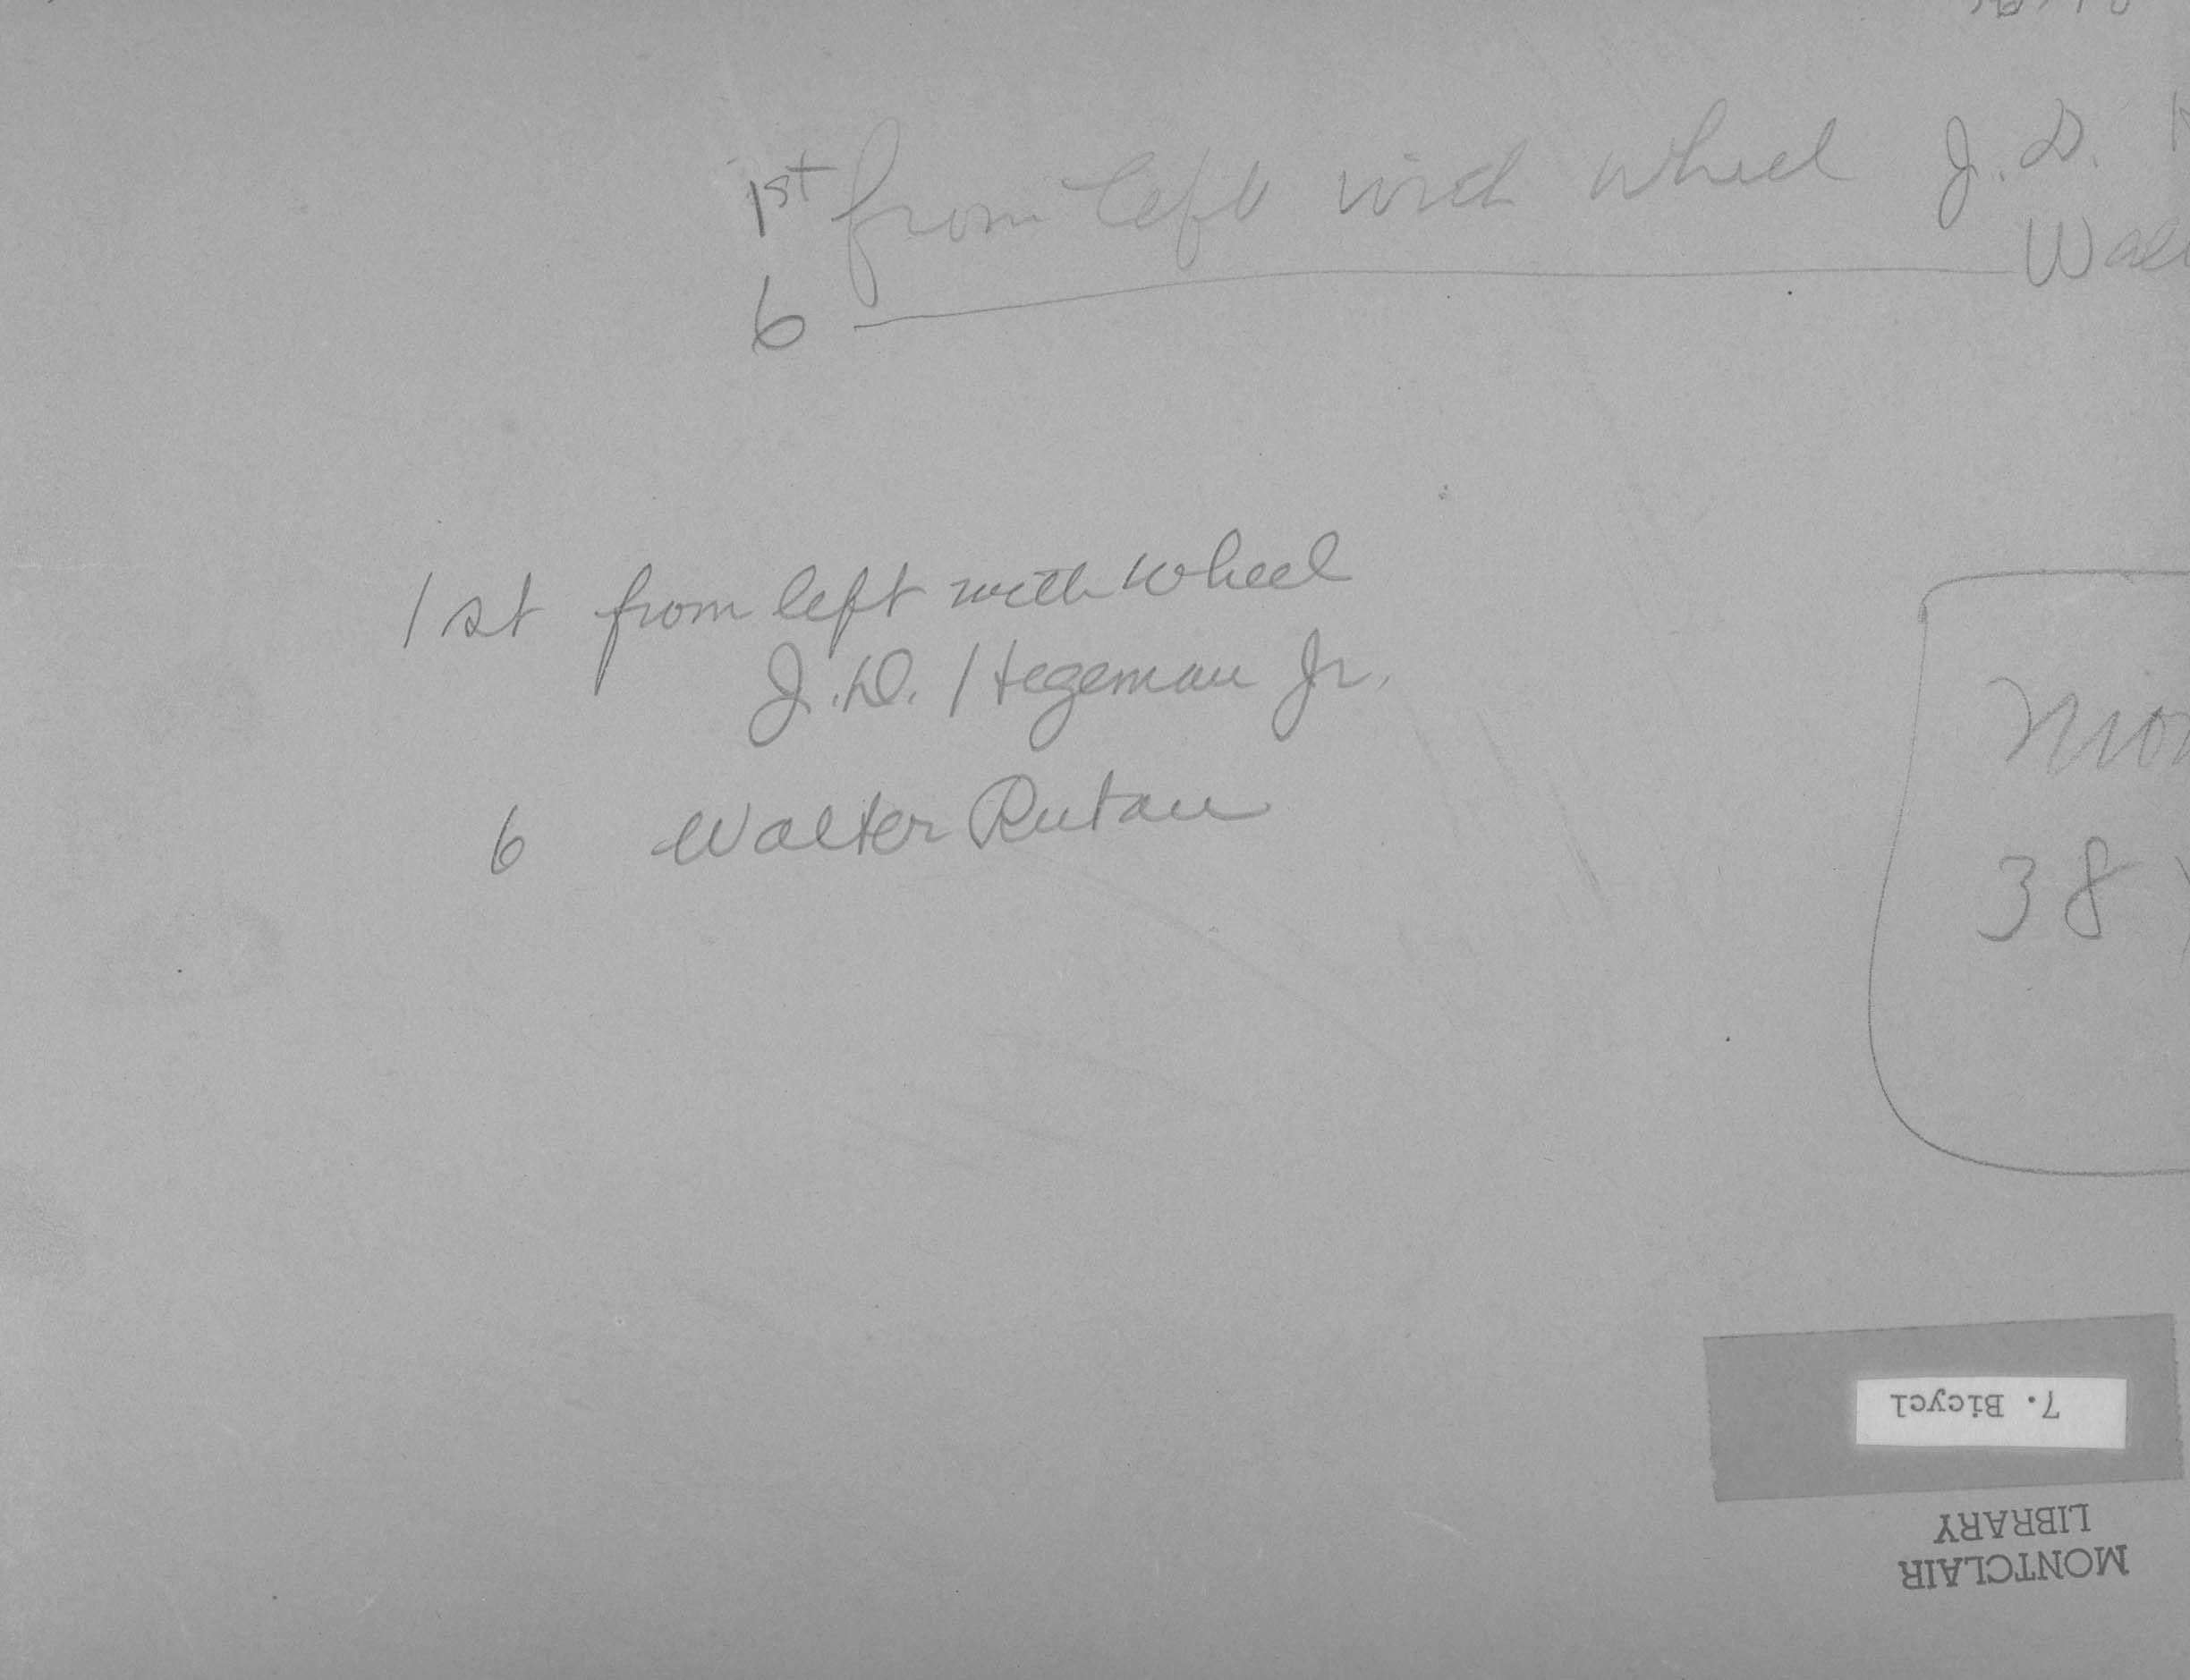 1st from left with wheel J. D.
6 Wal
1st from left with wheel
J. D. Hegeman Jr.
6 Walter Rutan
38
7. Bicycl
MONTCLAIR
LIBRARY